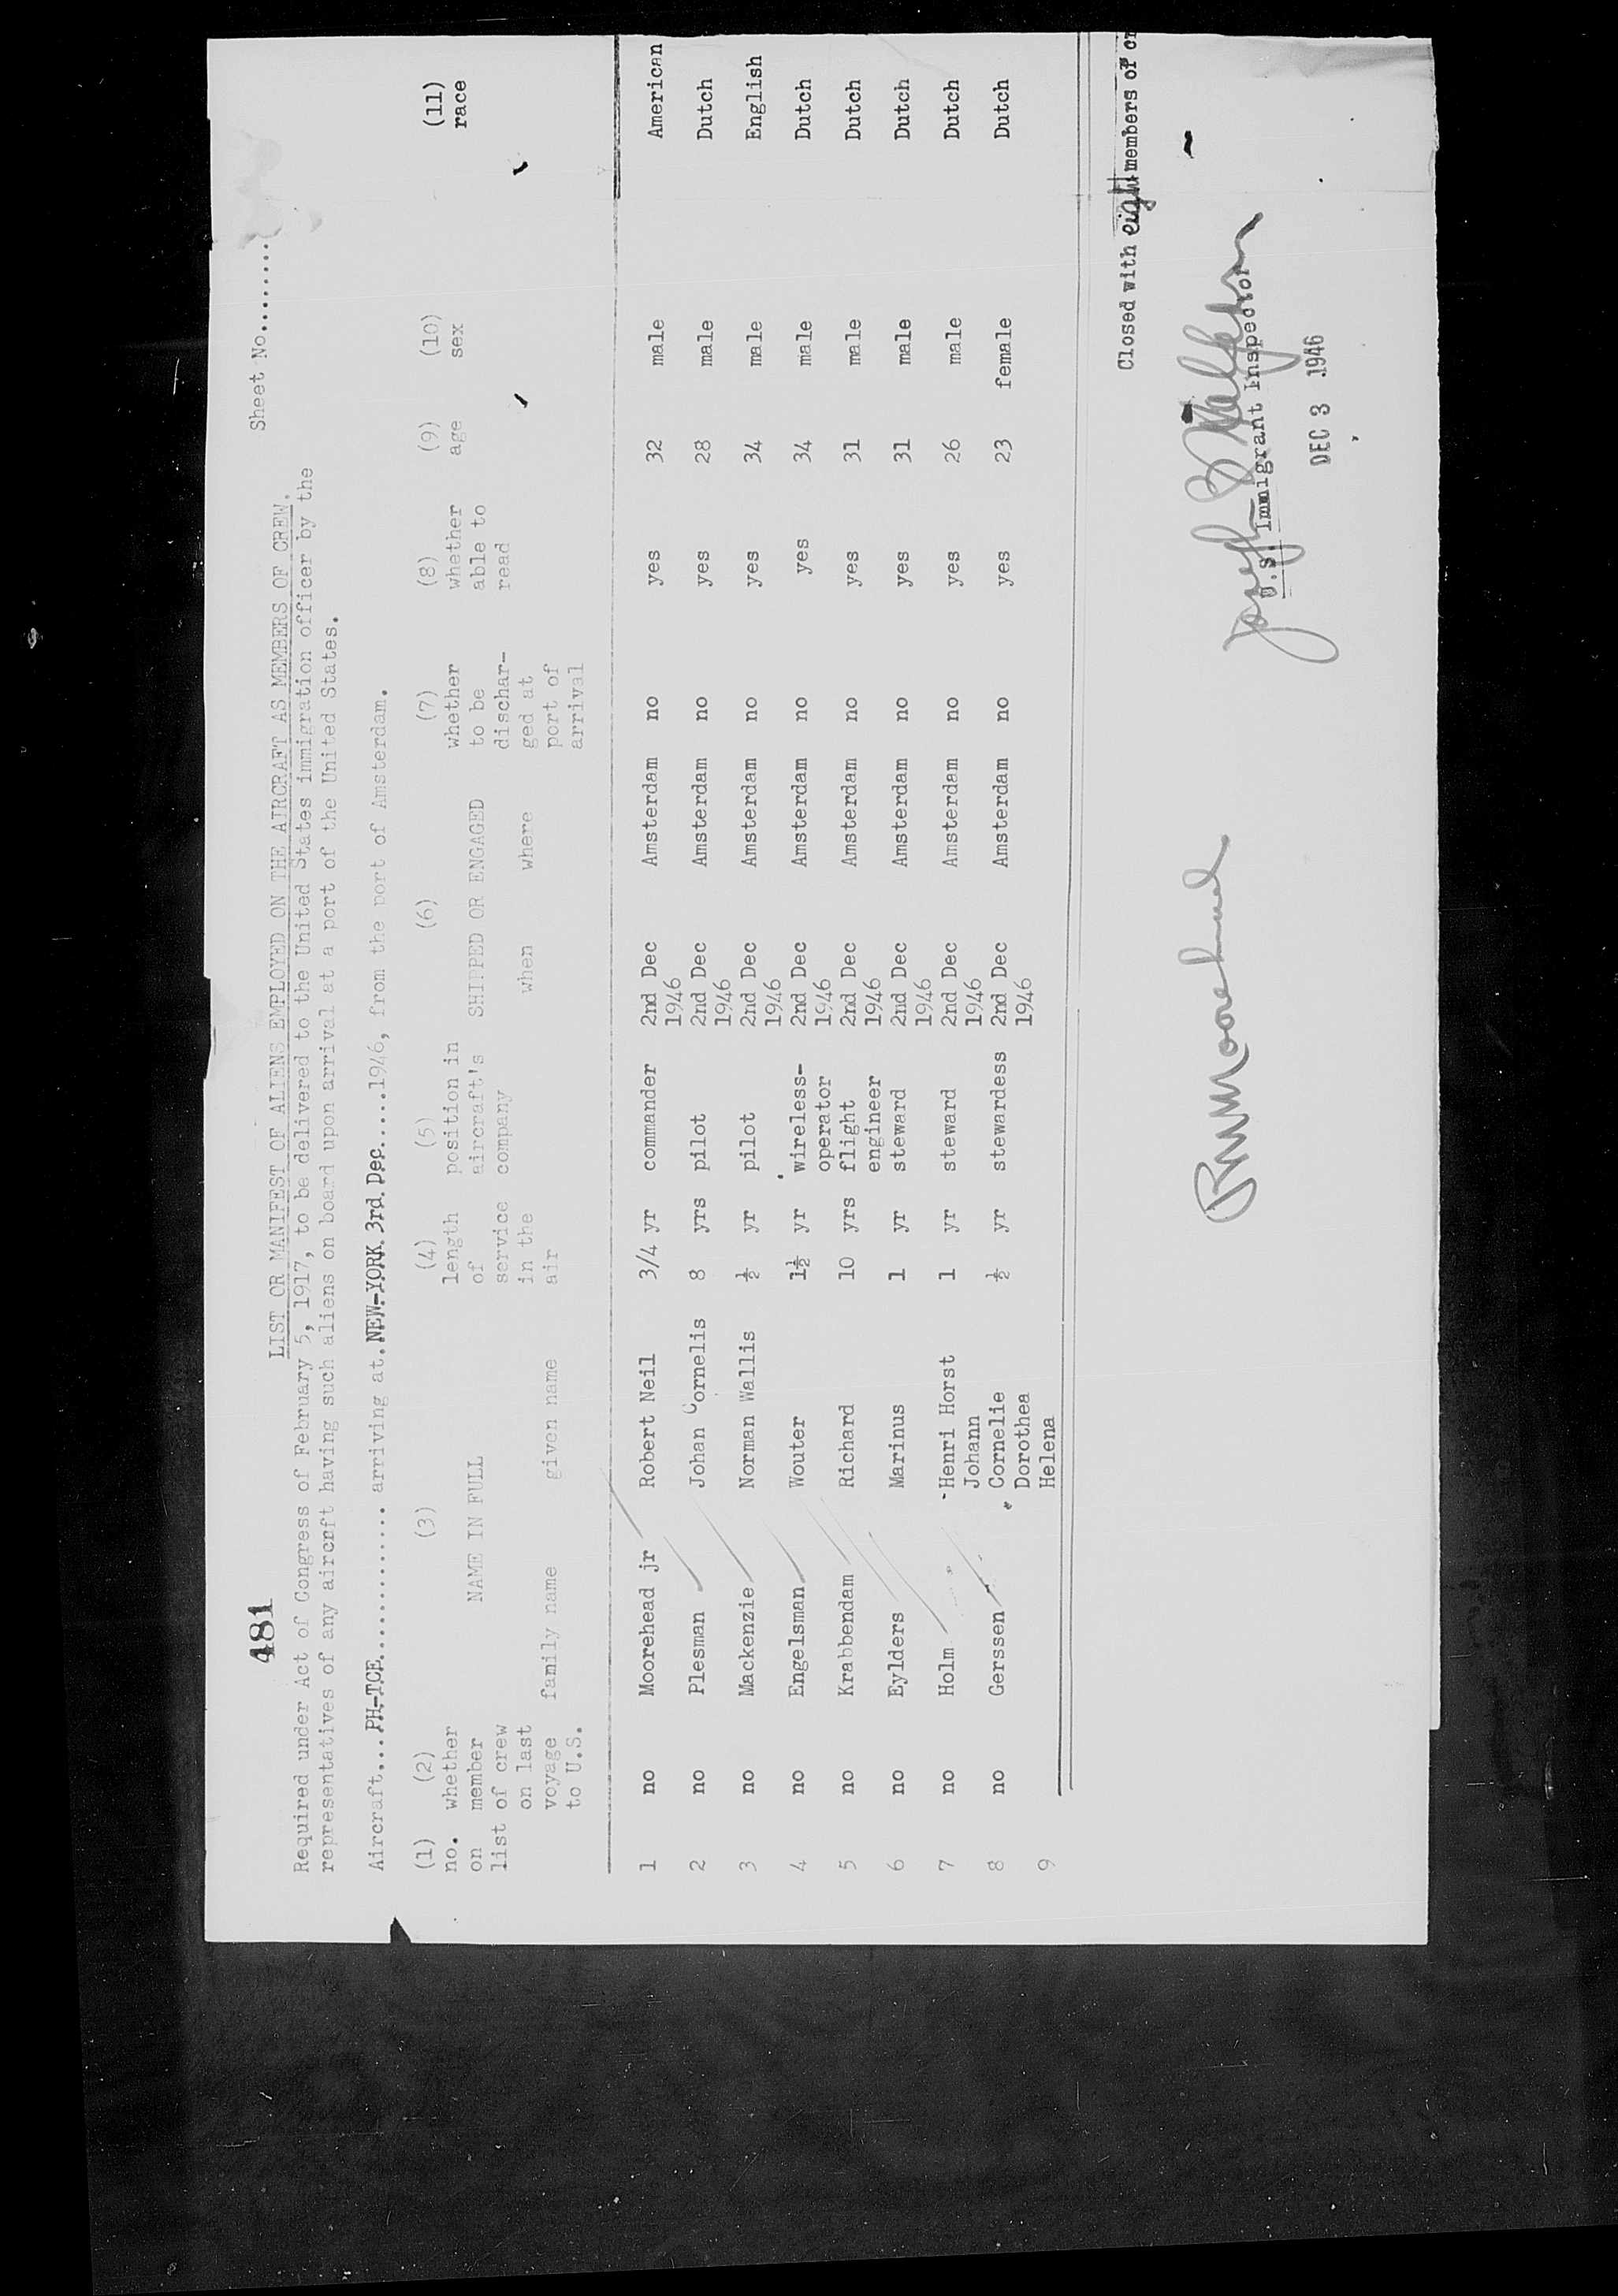 481
Sheet No..........
LIST OR MANIFEST OF ALIENS EMPLOYED ON THE AIRCRAFT AS MEMBERS OF CREW.
Required under Act of Congress of February 5, 1917, to be delivered to the United States immigration officer by the
representatives of any aircrft having such aliens on board upon arrival at a port of the United States.
Aircraft...PH-TCE............ arriving at.NEW-YORK.3rd.Dec.....1946, from the port of Amsterdam.
(1) (2) (3) (4) (5) (6) (7) (8) (9) (10) (11)
no. whether length position in whether whether age sex race
on member NAME IN FULL of aircraft's SHIPPED OR ENGAGED to be able to
list of crew service company dischar- read
on last in the when where ged at
voyage family name given name air port of
to U.S. arrival
1 no Moorehead jr Robert Neil 3/4 yr commander 2nd Dec Amsterdam no yes 32 male American
1946
2 no Plesman Johan Cornelis 8 yrs pilot 2nd Dec Amsterdam no yes 28 male Dutch
1946
3 no Mackenzie Norman Wallis ½ yr pilot 2nd Dec Amsterdam no yes 34 male English
1946
4 no Engelsman Wouter 1½ yr wireless- 2nd Dec Amsterdam no yes 34 male Dutch
operator 1946
5 no Krabbendam Richard 10 yrs flight 2nd Dec Amsterdam no yes 31 male Dutch
engineer 1946
6 no Eylders Marinus 1 yr steward 2nd Dec Amsterdam no yes 31 male Dutch
1946
7 no Holm Henri Horst 1 yr steward 2nd Dec Amsterdam no yes 26 male Dutch
Johann 1946
8 no Gerssen Cornelie ½ yr stewardess 2nd Dec Amsterdam no yes 23 female Dutch
Dorothea 1946
9 Helena
Closed with eight members of cr
U.S. Immigrant Inspector
DEC 3 1946